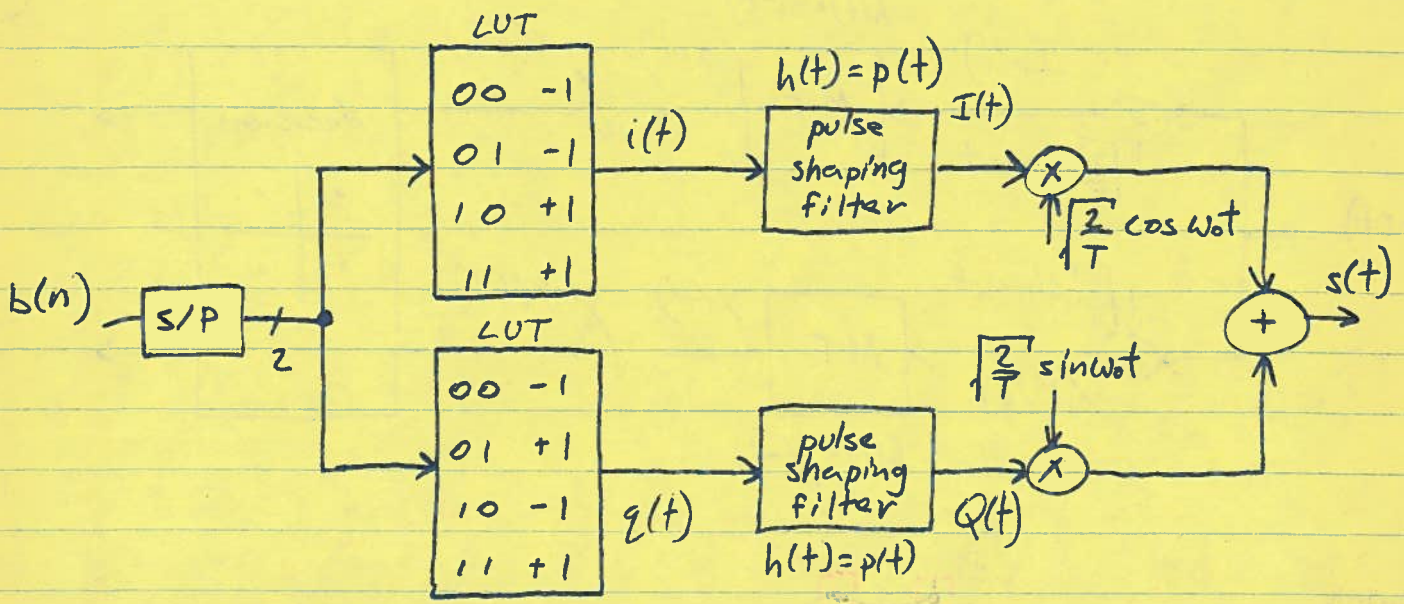 LUT
00 -1
01 -1
10 +1
11 +1
i(t)
h(t) = p(t)
pulse
shaping
filter
I(t)
×
√2/T cos ω₀t
b(n)
S/P
2
LUT
00 -1
01 +1
10 -1
11 +1
q(t)
pulse
shaping
filter
h(t) = p(t)
Q(t)
√2/T sin ω₀t
×
+
s(t)